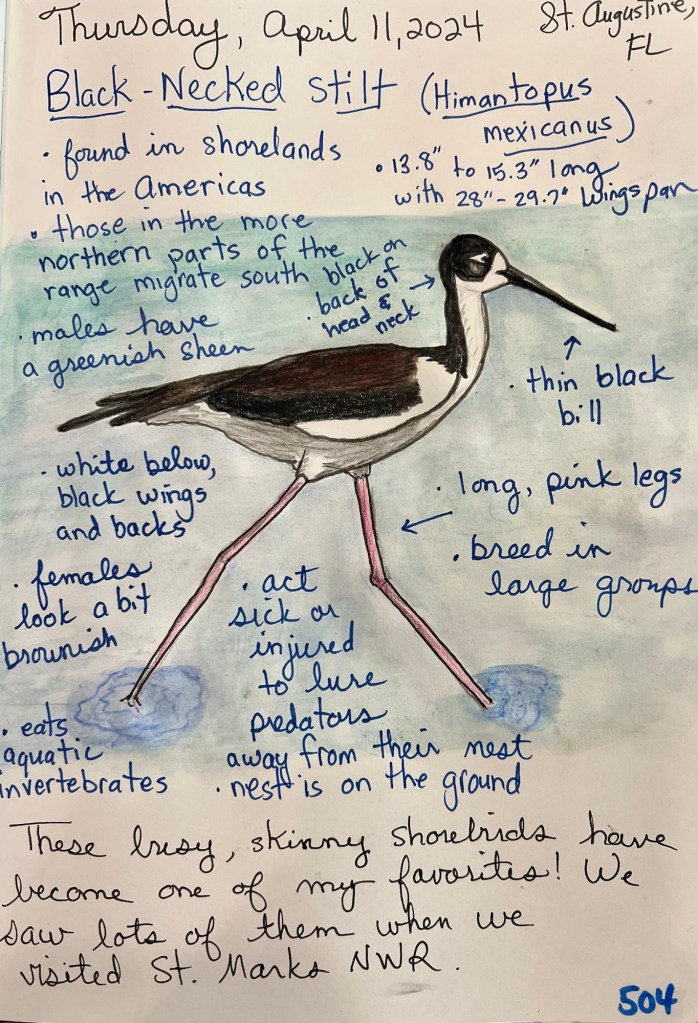 Thursday, April 11, 2024
St. Augustine,
FL
Black-Necked Stilt (Himantopus
mexicanus)
• found in shorelands
in the Americas
• 13.8" to 15.3" long
with 28"-29.7" wingspan
• those in the more
northern parts of the
range migrate south
• black on
back of
head &
neck
• males have
a greenish sheen
• thin black
bill
• white below,
black wings
and backs
• long, pink legs
• breed in
large groups
• females
look a bit
brownish
• act
sick or
injured
to lure
predators
away from their nest
• nest is on the ground
• eats
aquatic
invertebrates
These busy, skinny shorebirds have
become one of my favorites! We
saw lots of them when we
visited St. Marks NWR.
504